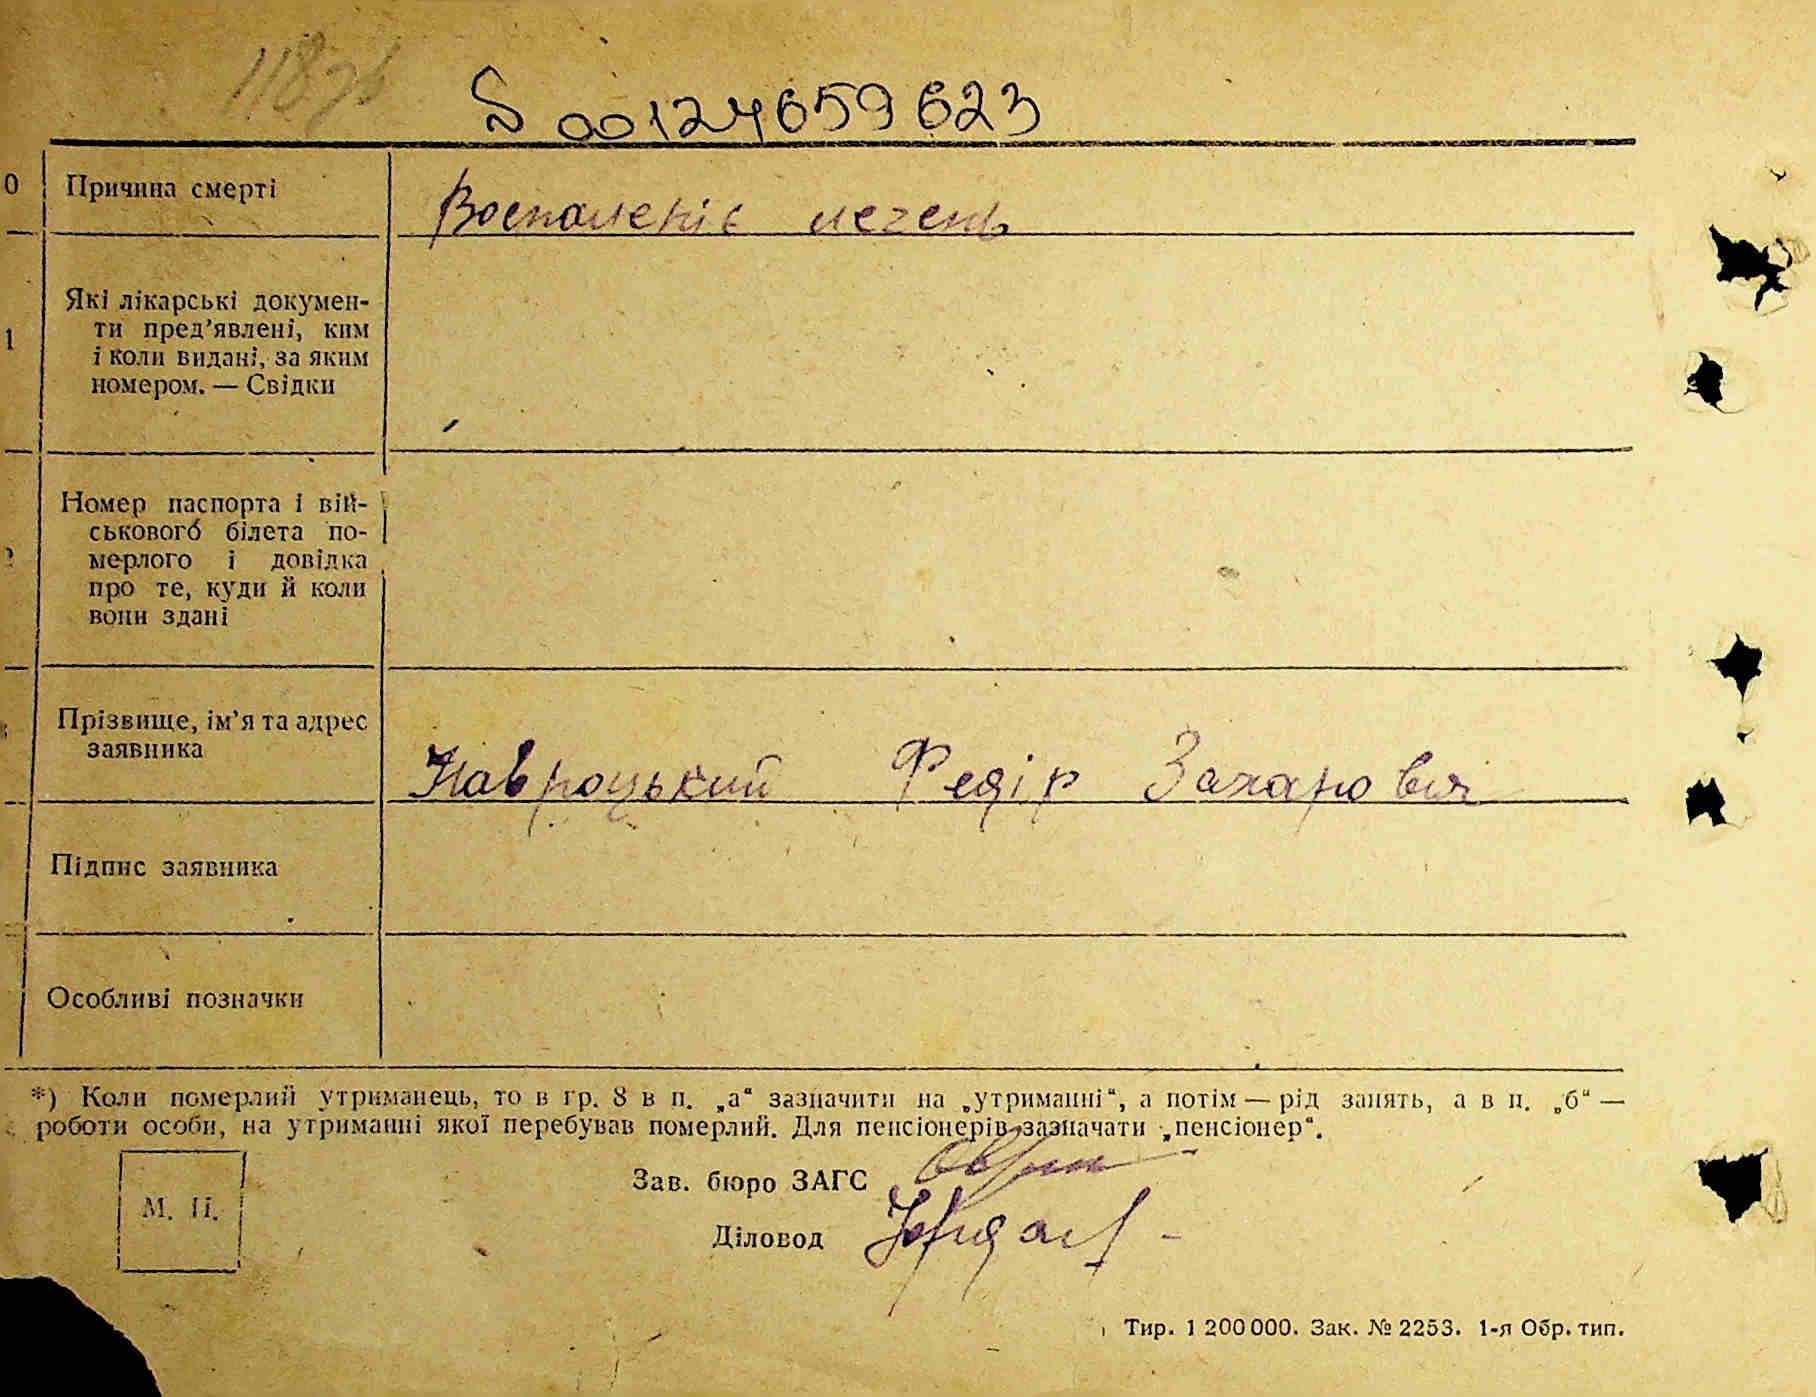 118зв
S 00124659623
0 Причина смерті
Воспаленіє легень
1 Які лікарські докумен-
ти пред’явлені, ким
і коли видані, за яким
номером. — Свідки
Номер паспорта і вій-
ськового білета по-
мерлого і довідка
про те, куди й коли
вони здані
Прізвище, ім’я та адрес
заявника
Навроцький Федір Захарович
Підпис заявника
Особливі позначки
*) Коли померлий утриманець, то в гр. 8 в п. „а“ зазначити на „утриманні“, а потім — рід занять, а в п. „б“ —
роботи особи, на утриманні якої перебував померлий. Для пенсіонерів зазначати „пенсіонер“.
Зав. бюро ЗАГС
М. П.
Діловод
Тир. 1 200 000. Зак. № 2253. 1-я Обр. тип.